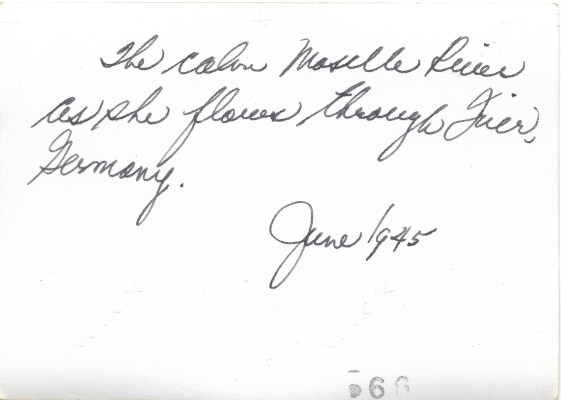 The calm Moselle River
as she flows through Trier,
Germany.
June 1945
66